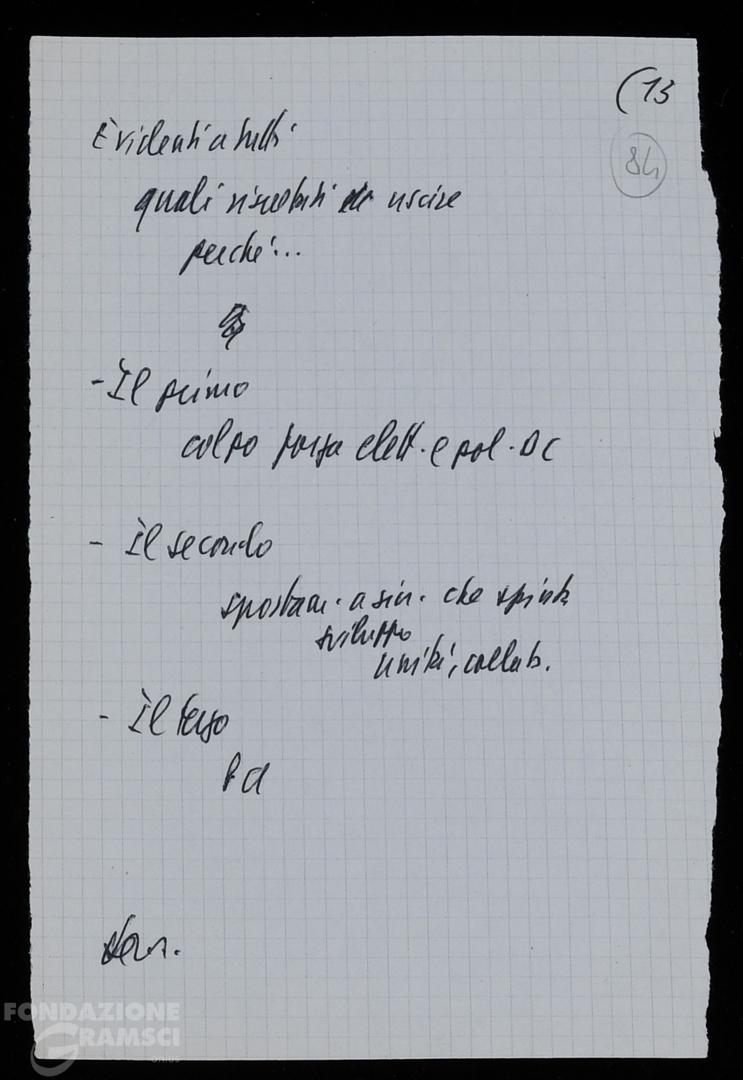 (13
84
Evidenti a tutti
quali risultati uscire
perché...
- Il primo
colpo forza elett. e pol. DC
- Il secondo
spostam. a sin. che spinta
sviluppo
unità, collab.
- Il terzo
Pci
FONDAZIONE
GRAMSCI
ONLUS